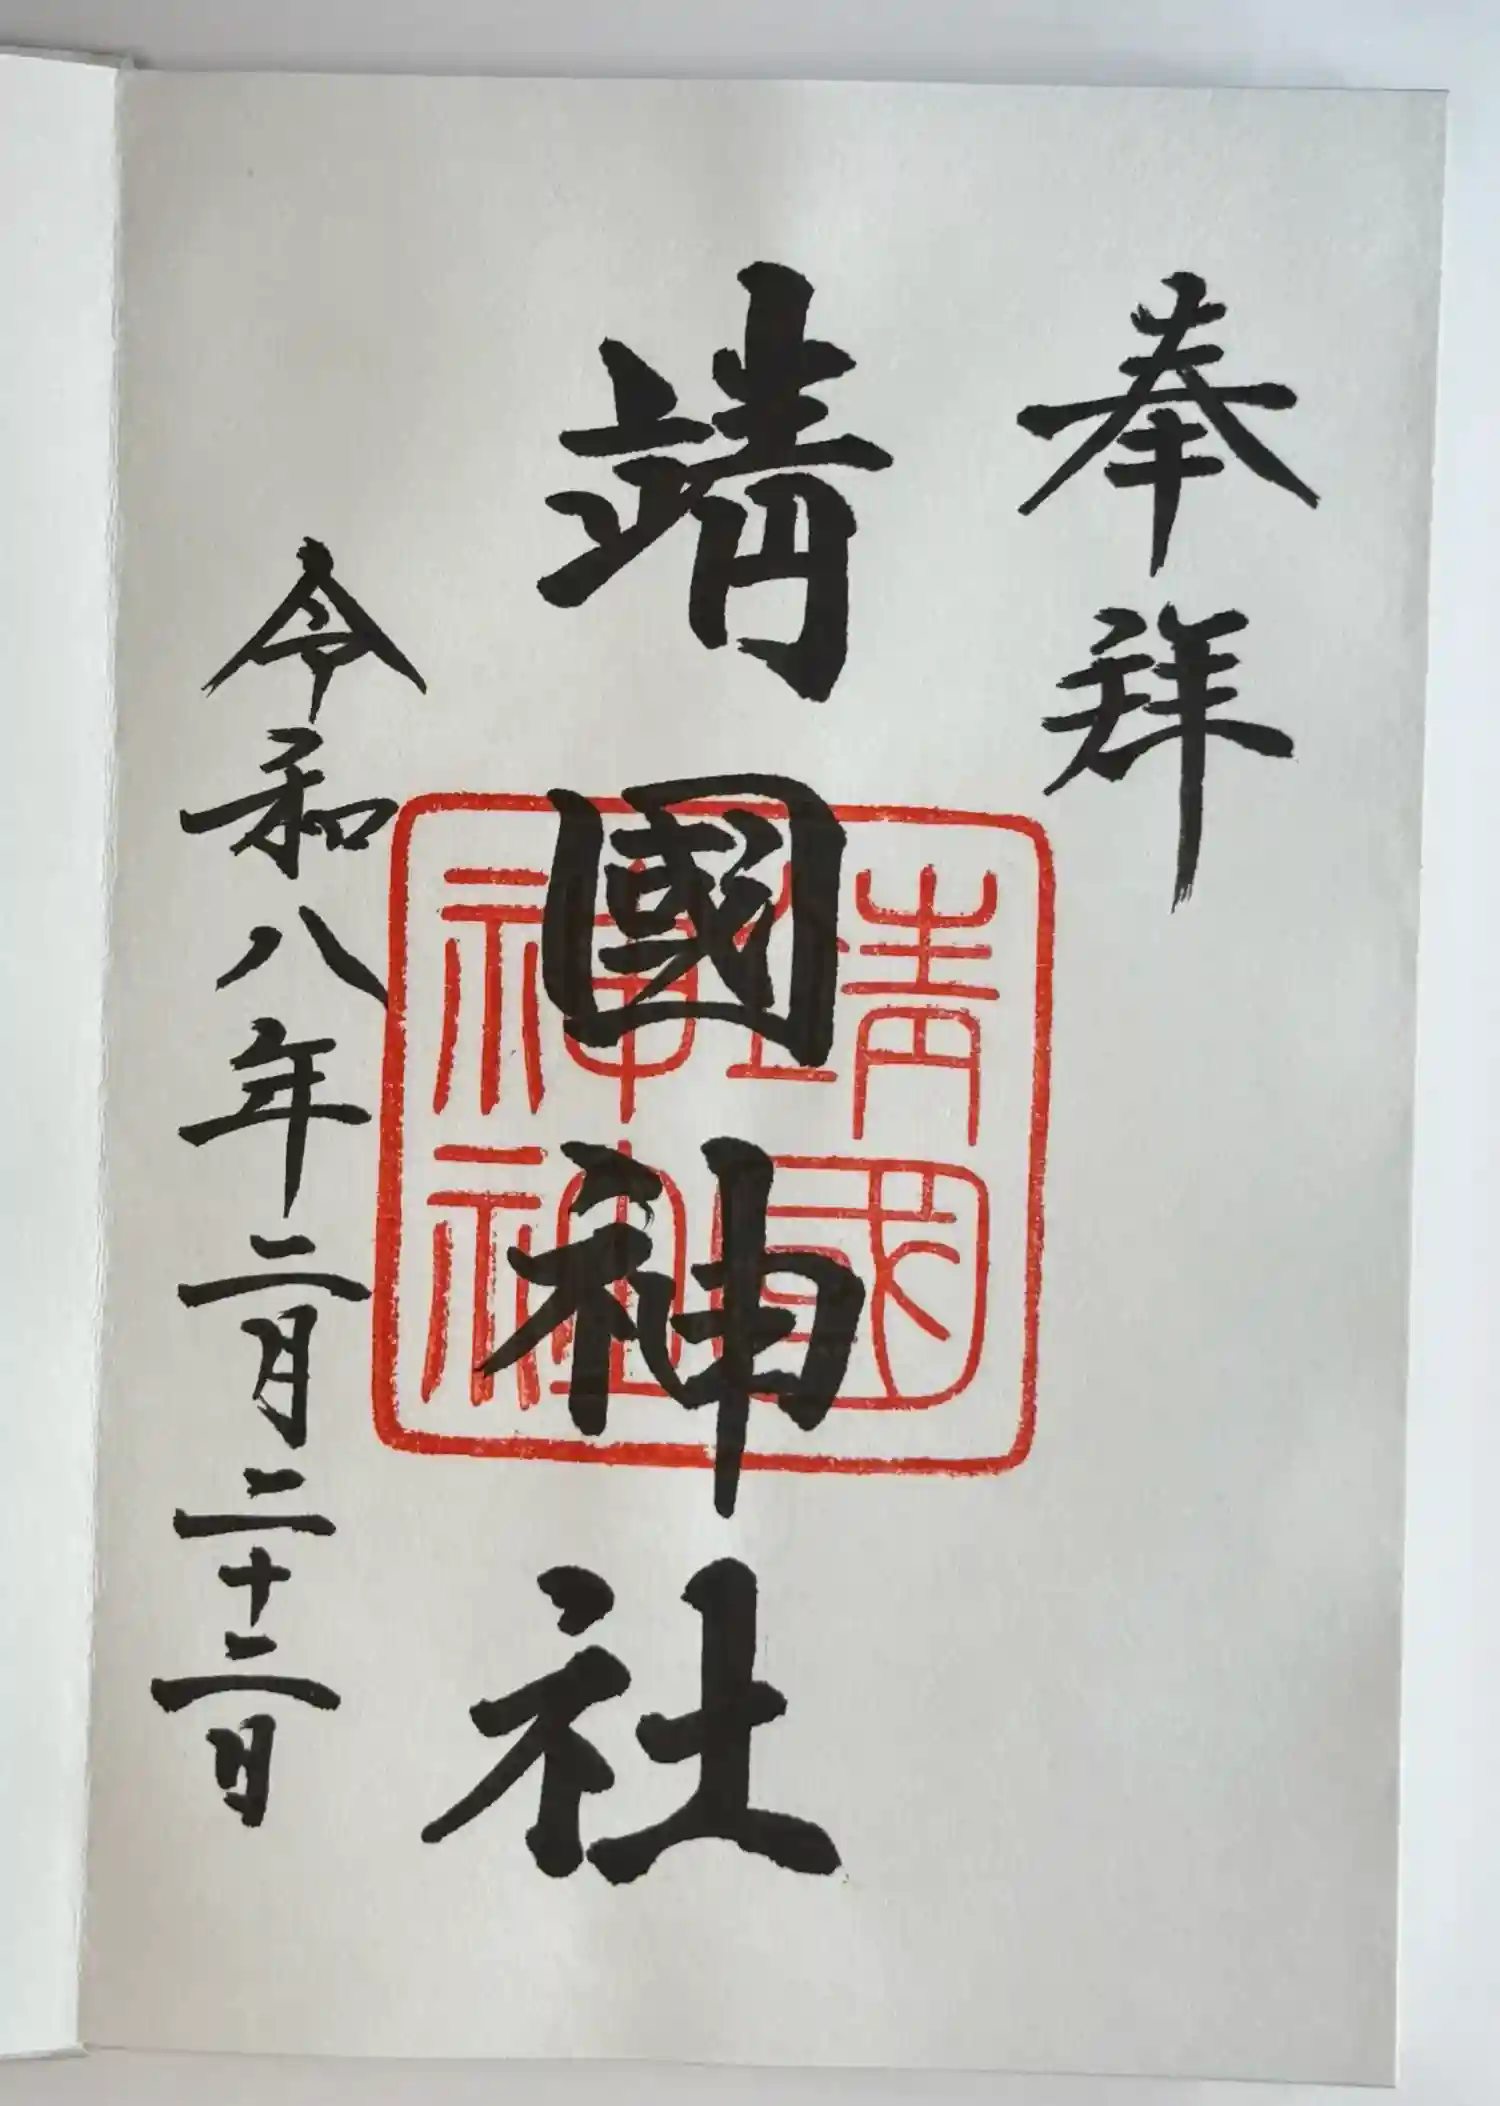 奉拜
靖國神社
靖國
神社
令和八年二月二十二日